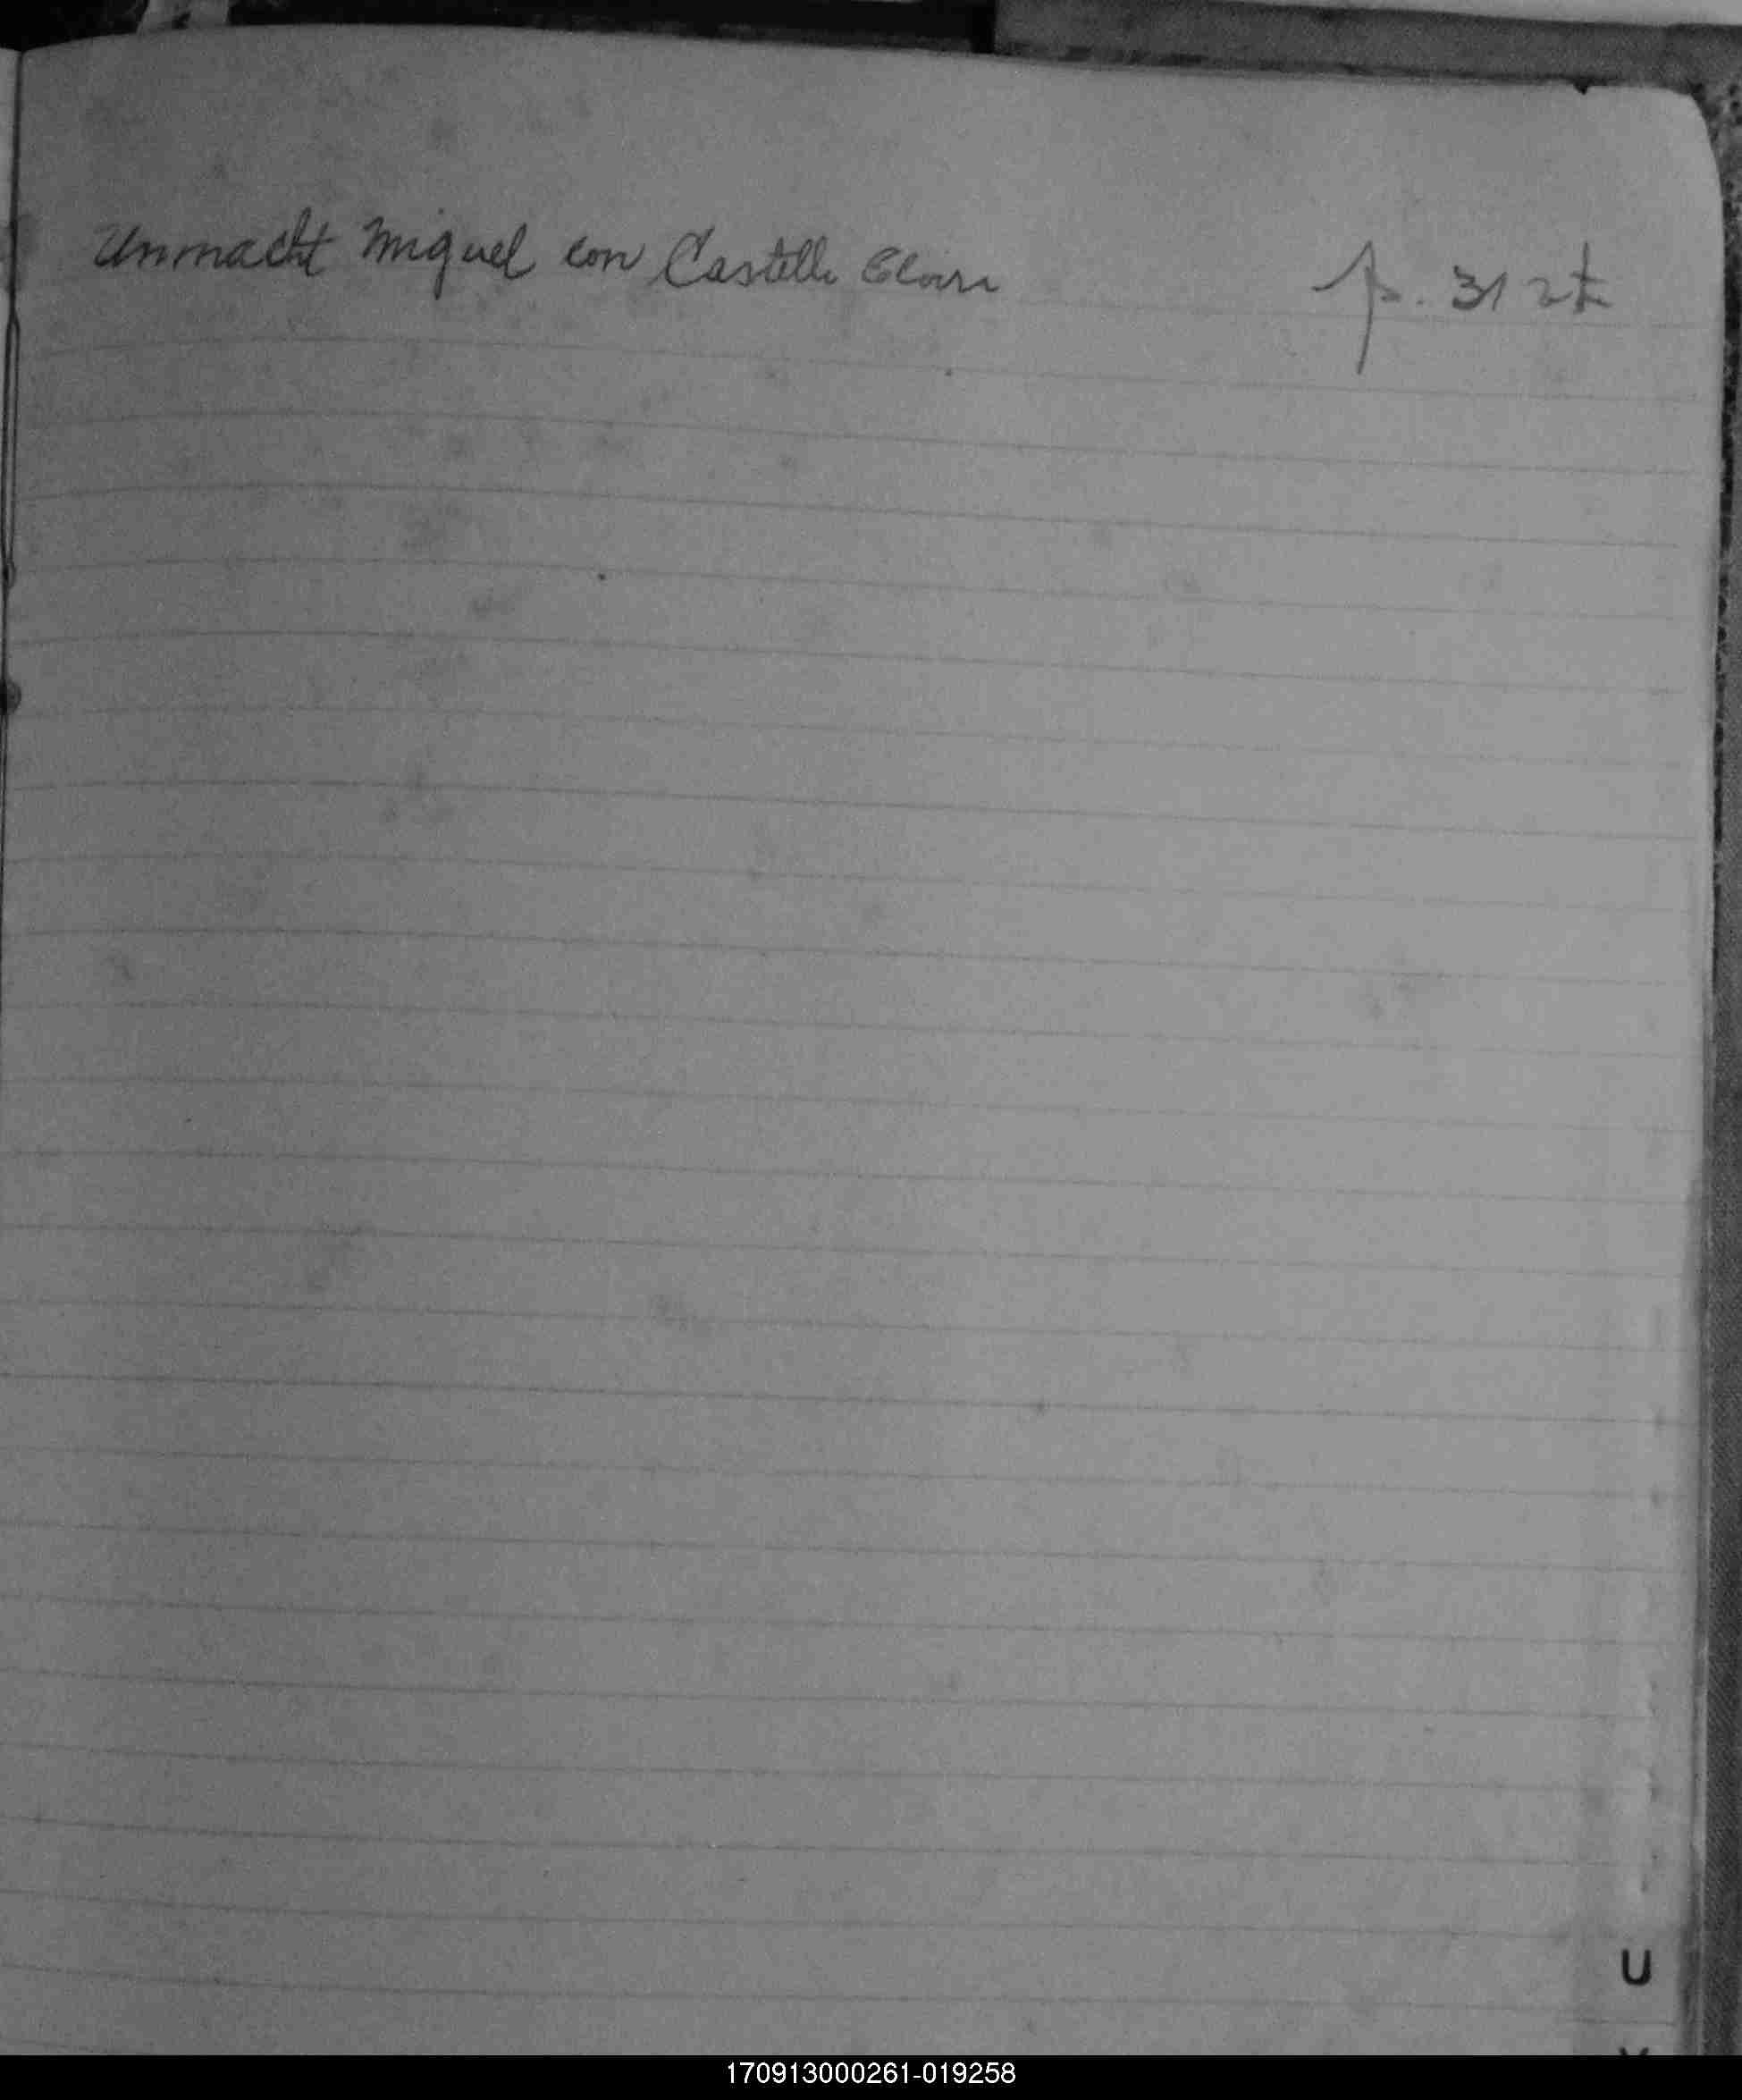 Unmacht Miguel con Castelli Elvira p. 31 vt
U
170913000261-019258